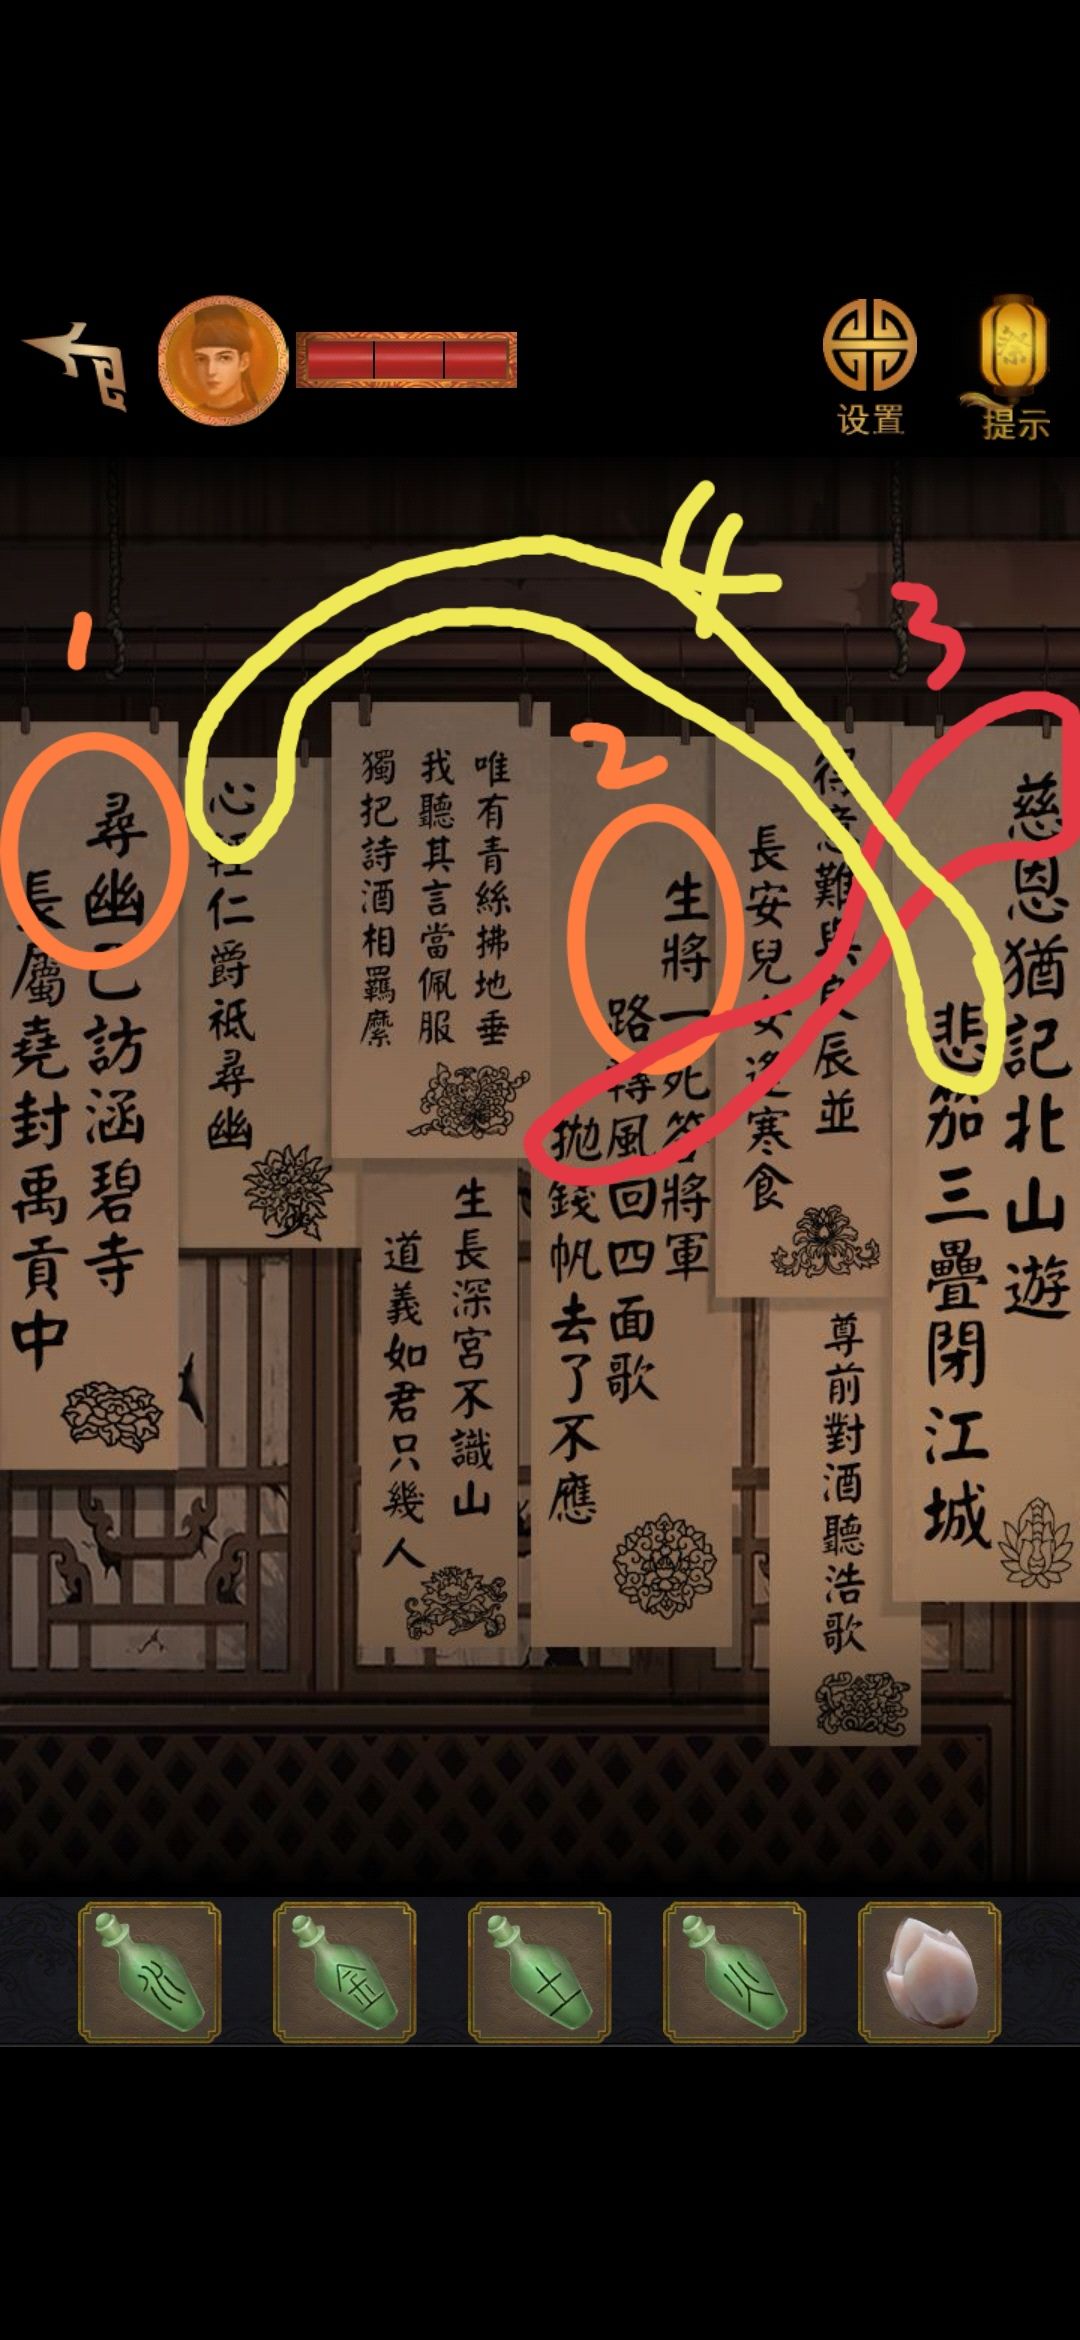 设置
提示
4
1
2
3
慈恩猶記北山遊
悲笳三疊閉江城
得意難與良辰並
長安兒女逢寒食
尊前對酒聽浩歌
生將一死答將軍
路轉風回四面歌
拋錢帆去了不應
唯有青絲拂地垂
我聽其言當佩服
獨把詩酒相羈縻
生長深宮不識山
道義如君只幾人
心輕仁爵祗尋幽
尋幽已訪涵碧寺
長屬堯封禹貢中
水
金
土
火